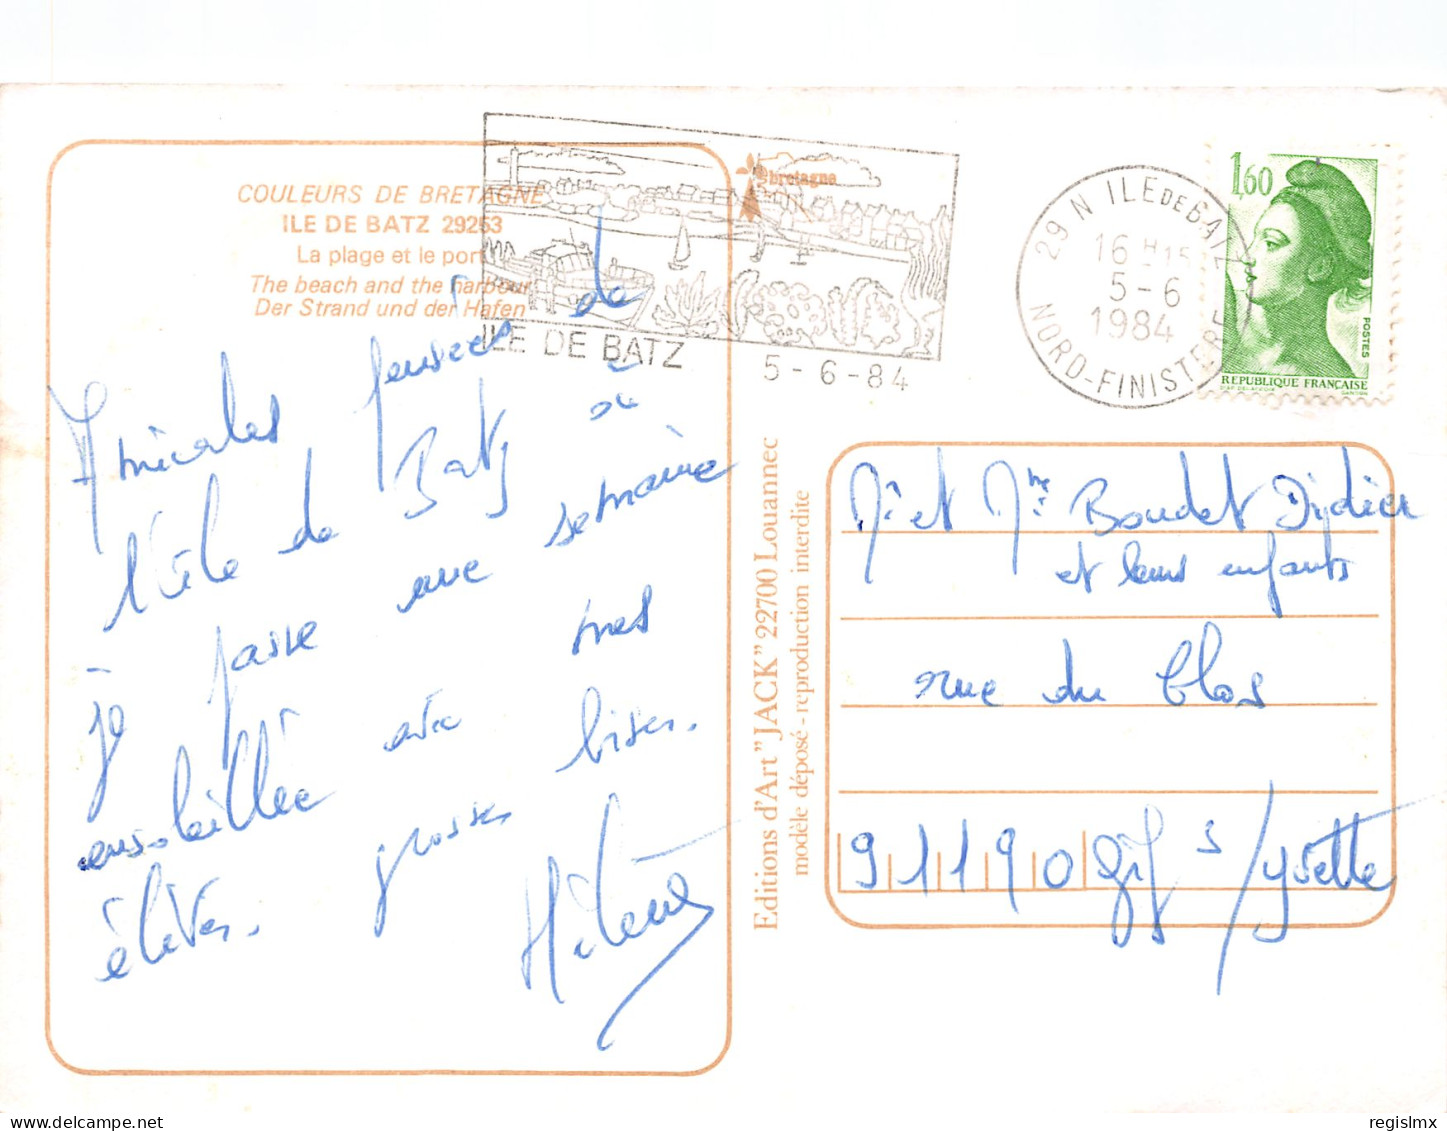 COULEURS DE BRETAGNE
ILE DE BATZ 29253
La plage et le port
The beach and the harbour
Der Strand und der Hafen
Amicales pensées de
l'île de Batz où
je passe une semaine
ensoleillée avec mes
élèves. grosses bises.
Hélène
bretagne
ILE DE BATZ
5-6-84
29 N ILE DE BATZ
16 H 15
5-6
1984
NORD-FINISTERE
1,60
POSTES
REPUBLIQUE FRANÇAISE
Editions d'Art "JACK" 22700 Louannec
modèle déposé - reproduction interdite
Mr et Mme Boudet Didier
et leurs enfants
rue du Clos
91190 Gif s/Yvette
regislmx